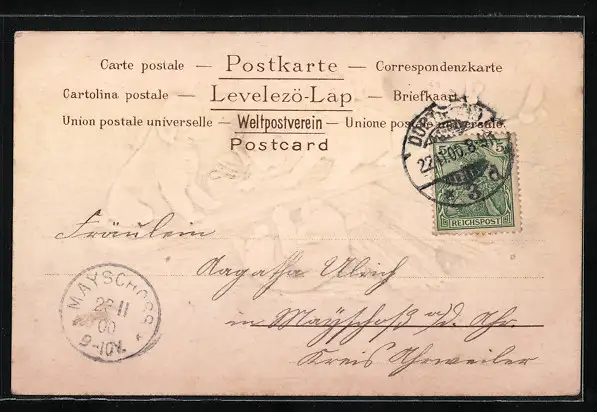 Carte postale — Postkarte — Correspondenzkarte
Cartolina postale — Levelező-Lap — Briefkaart
Union postale universelle — Weltpostverein — Unione postale universale.
Postcard
5
REICHSPOST
22.11.00. 8-9
* 3 d
Fräulein
Agatha Ulrich
in Mayschoß a/d. Ahr.
Kreis Ahrweiler
MAYSCHOSS *
22 11
00
9-10V.